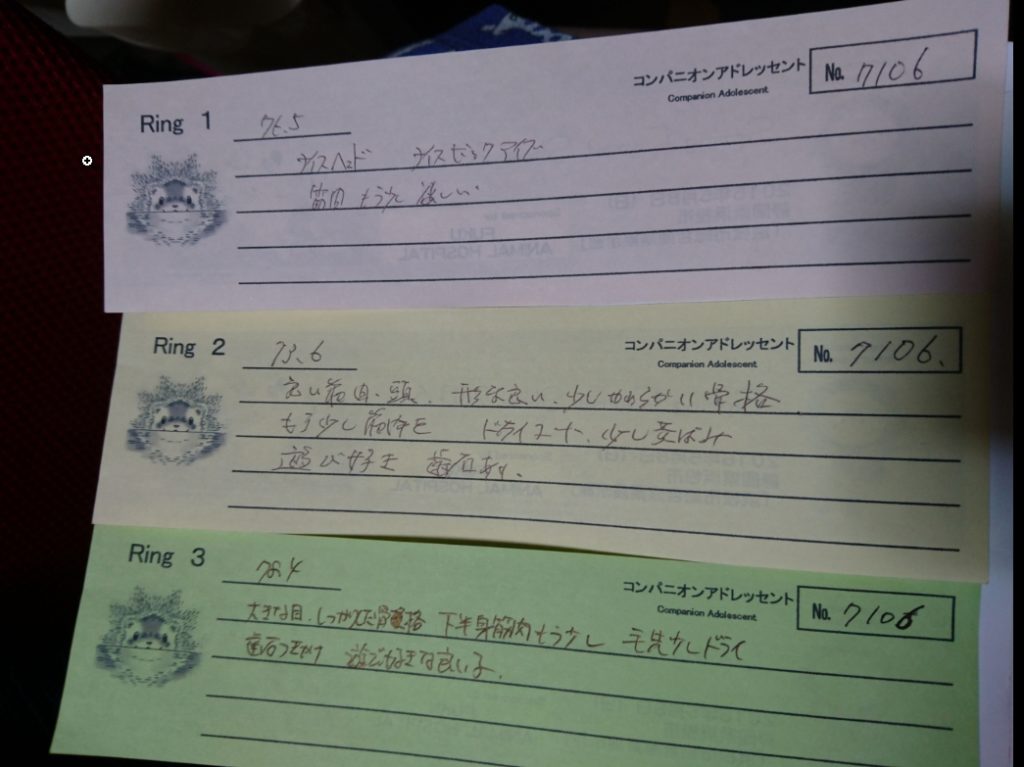 コンパニオンアドレッセント
Companion Adolescent
No. 7106
Ring 1
76.5
ナイスヘッド ナイスビックアイズ
筋肉 もう少し 欲しい
コンパニオンアドレッセント
Companion Adolescent
No. 7106.
Ring 2
73.6
良い筋肉、頭、形は良い、少しやわらかい骨格
もう少し筋肉を ドライコート、少し
遊び好き 歯石あり、
コンパニオンアドレッセント
Companion Adolescent
No. 7106
Ring 3
大きな目、しっかりした骨格 下半身筋肉もう少し 毛先少しドライ
歯石つきかけ 遊び好きな良い子、